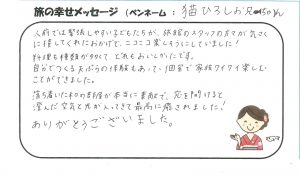 旅の幸せメッセージ（ペンネーム：猫ひろしお兄ちゃん
人前では緊張しやすい子どもたちが、旅館のスタッフの方々が気さく
に接してくれたおかげで、ニコニコ楽しそうにしていました！
料理も種類が多くて、どれもおいしかったです。
自分でつくる天ぷらの体験もあって、1回目で家族ワイワイ楽しむ
ことができました。
落ち着いた和のお部屋が本当に素敵で、窓を開けると
澄んだ空気と光が入ってきて最高に癒されました！
ありがとうございました。